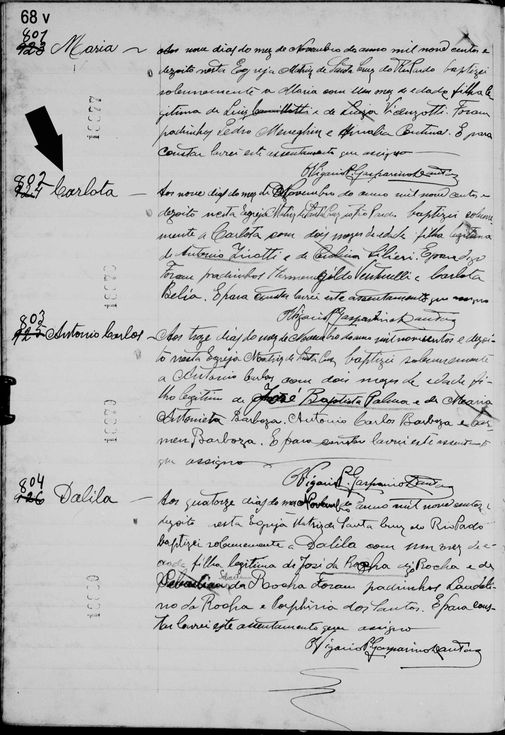 68 v
801
923 Maria — Aos nove dias do mez de Novembro do anno mil nove centos e
dezoito nesta Egreja Matriz de Santa Cruz do Rio Pardo baptizei
solemnemente a Maria com um mez de edade filha le
gitima de Luiz e de Luiza Vicenzotti. Foram
padrinhos Pedro Meneghin e Amalia E para
constar lavrei este assentamento que assigno
O Vigario P. Gasparino Dantas
802
Carlota — Aos nove dias do mez de Novembro do anno mil nove centos e
dezoito nesta Egreja Matriz de Santa Cruz do Rio Pardo baptizei solemne
mente a Carlota com dois mezes de edade filha legitima
de Antonio Zinotti e de Silieri. E para digo
Foram padrinhos Hermenegildo Ventinelli e Carlota
Belia. E para constar lavrei este assentamento que assigno
O Vigario P. Gasparino Dantas
803
Antonio Carlos — Aos treze dias do mez de Novembro do anno mil novecentos e dezoi
to nesta Egreja Matriz de Santa Cruz baptizei solemnemente
a Antonio Carlos com dois mezes de edade fi
lho legitimo de José Baptista Palma e de Maria
Antonieta Barboza. Antonio Carlos Barboza e Car
men Barboza. E para constar lavrei este assentamento
que assigno
O Vigario P. Gasparino Dantas
804
926 Dalila — Aos quatorze dias do mez Novembro do anno mil nove centos e
dezoito nesta Egreja Matriz de Santa Cruz do Rio Pardo
baptizei solemnemente a Dalila com um mez de e
dade filha legitima de José da Rocha digo Rocha e de
Sebastiana da Rocha Foram padrinhos Candido
da Rocha e Baptista dos Santos. E para cons
tar lavrei este assentamento que assigno
O Vigario P. Gasparino Dantas